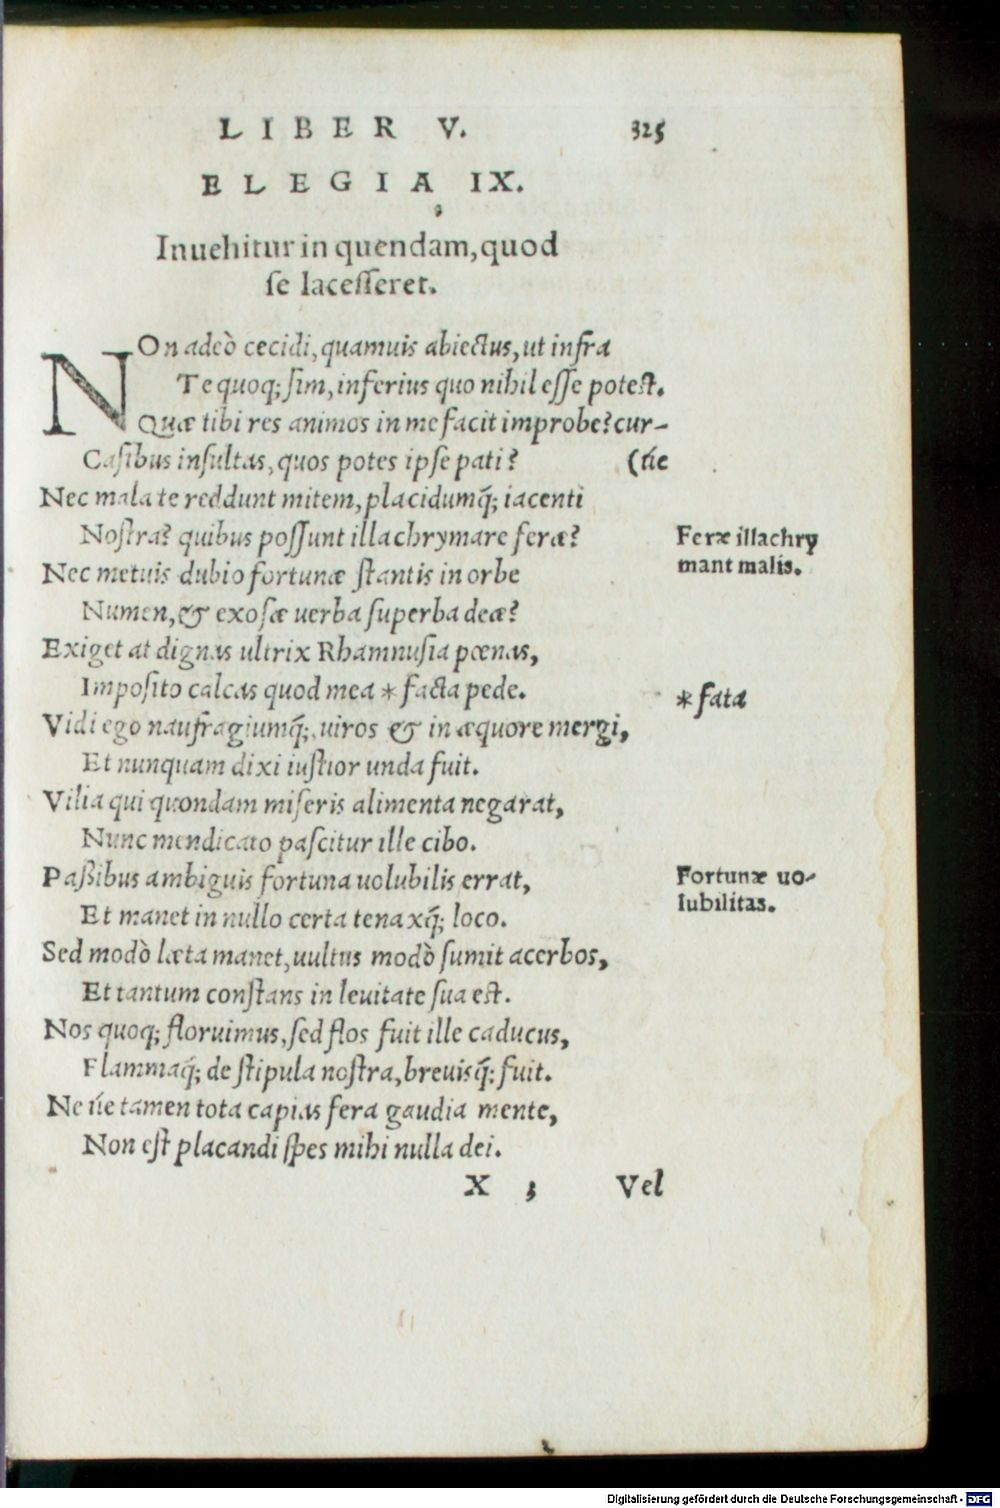 LIBER V. 325
ELEGIA IX.
Inuehitur in quendam, quod
se lacesseret.
NOn adeò cecidi, quamuis abiectus, ut infra
Te quoq; sim, inferius quo nihil esse potest.
Quæ tibi res animos in me facit improbe? cur-
Casibus insultas, quos potes ipse pati? (úe
Nec mala te reddunt mitem, placidumq́; iacenti
Nostra? quibus possunt illachrymare feræ?
Feræ illachry
mant malis.
Nec metuis dubio fortunæ stantis in orbe
Numen, & exosæ uerba superba deæ?
Exiget at dignas ultrix Rhamnusia pœnas,
Imposito calcas quod mea * facta pede.
* fata
Vidi ego naufragiumq́;, uiros & in æquore mergi,
Et nunquam dixi iustior unda fuit.
Vilia qui quondam miseris alimenta negarat,
Nunc mendicato pascitur ille cibo.
Paßibus ambiguis fortuna uolubilis errat,
Fortunæ uo-
lubilitas.
Et manet in nullo certa tenaxq́; loco.
Sed modò læta manet, uultus modò sumit acerbos,
Et tantum constans in leuitate sua est.
Nos quoq; floruimus, sed flos fuit ille caducus,
Flammaq́; de stipula nostra, breuisq́; fuit.
Ne úe tamen tota capias fera gaudia mente,
Non est placandi spes mihi nulla dei.
X 3 Vel
Digitalisierung gefördert durch die Deutsche Forschungsgemeinschaft - DFG